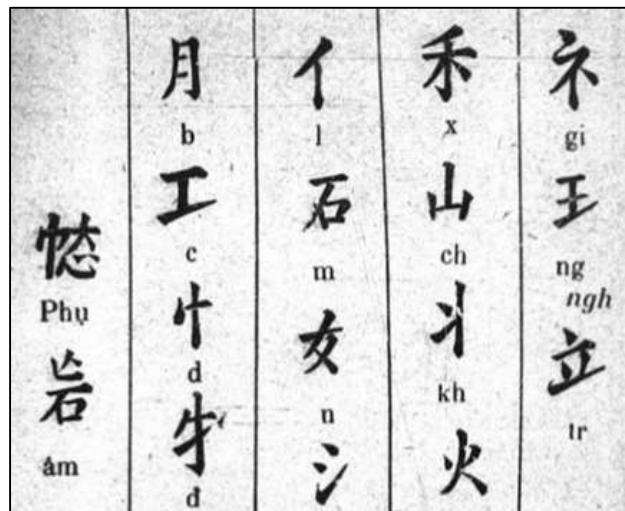 Phụ
âm
月
b
工
c
忄
d
牜
đ
亻
l
石
m
女
n
氵
禾
x
山
ch
丬
kh
火
礻
gi
王
ng
ngh
立
tr